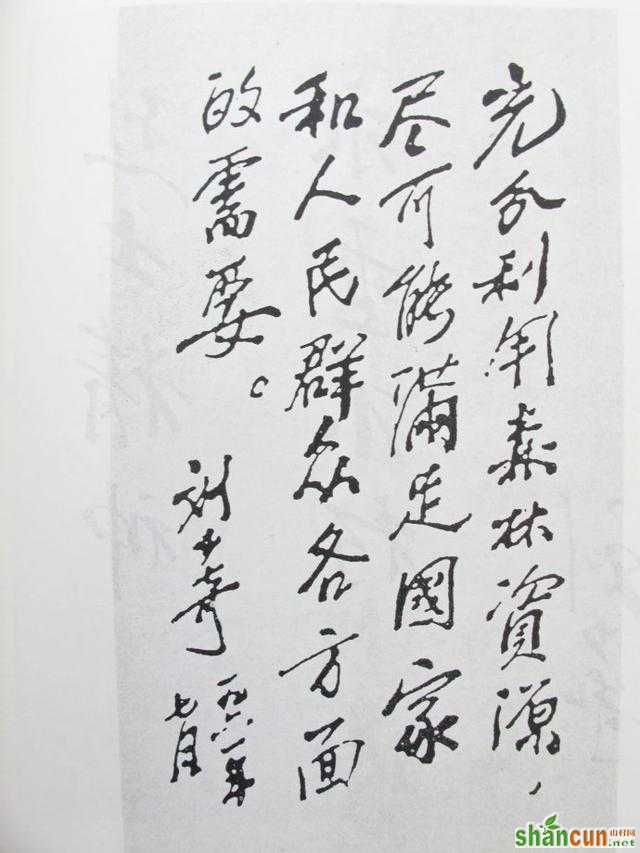 充分利用森林資源，
尽可能滿足國家
和人民群众各方面
的需要。
刘少奇
一九六一年
七月
shancun.net
山村网